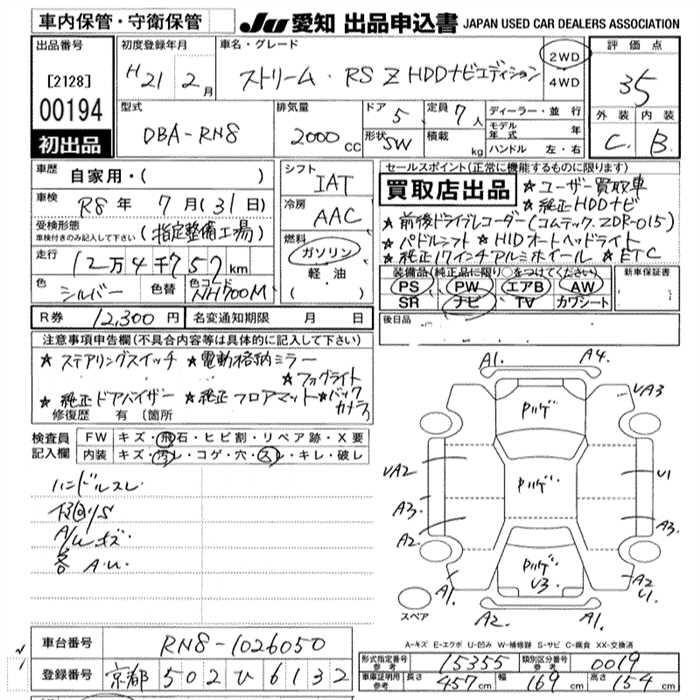 車内保管・守衛保管
JU 愛知 出品申込書 JAPAN USED CAR DEALERS ASSOCIATION
出品番号
[2128]
00194
初出品
初度登録年月
H21 2月
車名・グレード
ストリーム・RS Z HDDナビエディション
2WD
4WD
評価点
35
外装 内装
C B
型式
DBA-RN8
排気量
2000 CC
ドア 5
形状 SW
定員 7人
積載 kg
ディーラー・並行
モデル年式 年
ハンドル 左・右
車歴 自家用・( )
車検 R8年 7月(31日)
受検形態 (指定整備工場)
車検付きのみ記入して下さい
走行 12万4千757km
色 シルバー 色替 色コード NH700M
シフト IAT
冷房 AAC
燃料 ガソリン
軽・油
( )
セールスポイント(正常に機能するものに限ります)
買取店出品 ★ユーザー買取車
★純正HDDナビ
★前後ドライブレコーダー(コムテック.ZDR-015)
★パドルシフト ★HIDオートヘッドライト
★純正17インチアルミホイール ★ETC
装備品(純正品に限り○をつけてください)
PS PW エアB AW
SR ナビ TV カワシート
新車保証書
R券 12,300円 名変通知期限 月 日
後日品
注意事項申告欄(不具合内容等は具体的に記入して下さい)
★ステアリングスイッチ ★電動格納ミラー
★フォグライト
★純正ドアバイザー ★純正フロアマット ★バックカメラ
修復歴 有 〔箇所
検査員記入欄
FW キズ・飛石・ヒビ割・リペア跡・X要
内装 キズ・汚レ・コゲ・穴・スレ・キレ・破レ
ハンドルスレ
A/Wキズ
各 A.U.
A1. A4.
VA3
パリゲ
VA2 U1
パリゲ
A3. A3.
A2.
パリゲ
U3
A1. A2 U1.
スペア A2 A1.
A-キズ E-エクボ U-凹み W-補修跡 S-サビ C-腐食 XX-交換済
車台番号 RN8-1026050
登録番号 京都 502 ひ 6132
形式指定番号 参考 15355 類別区分番号 参考 0019
車庫証明用 参考 長さ 457cm 幅 169cm 高さ 154cm